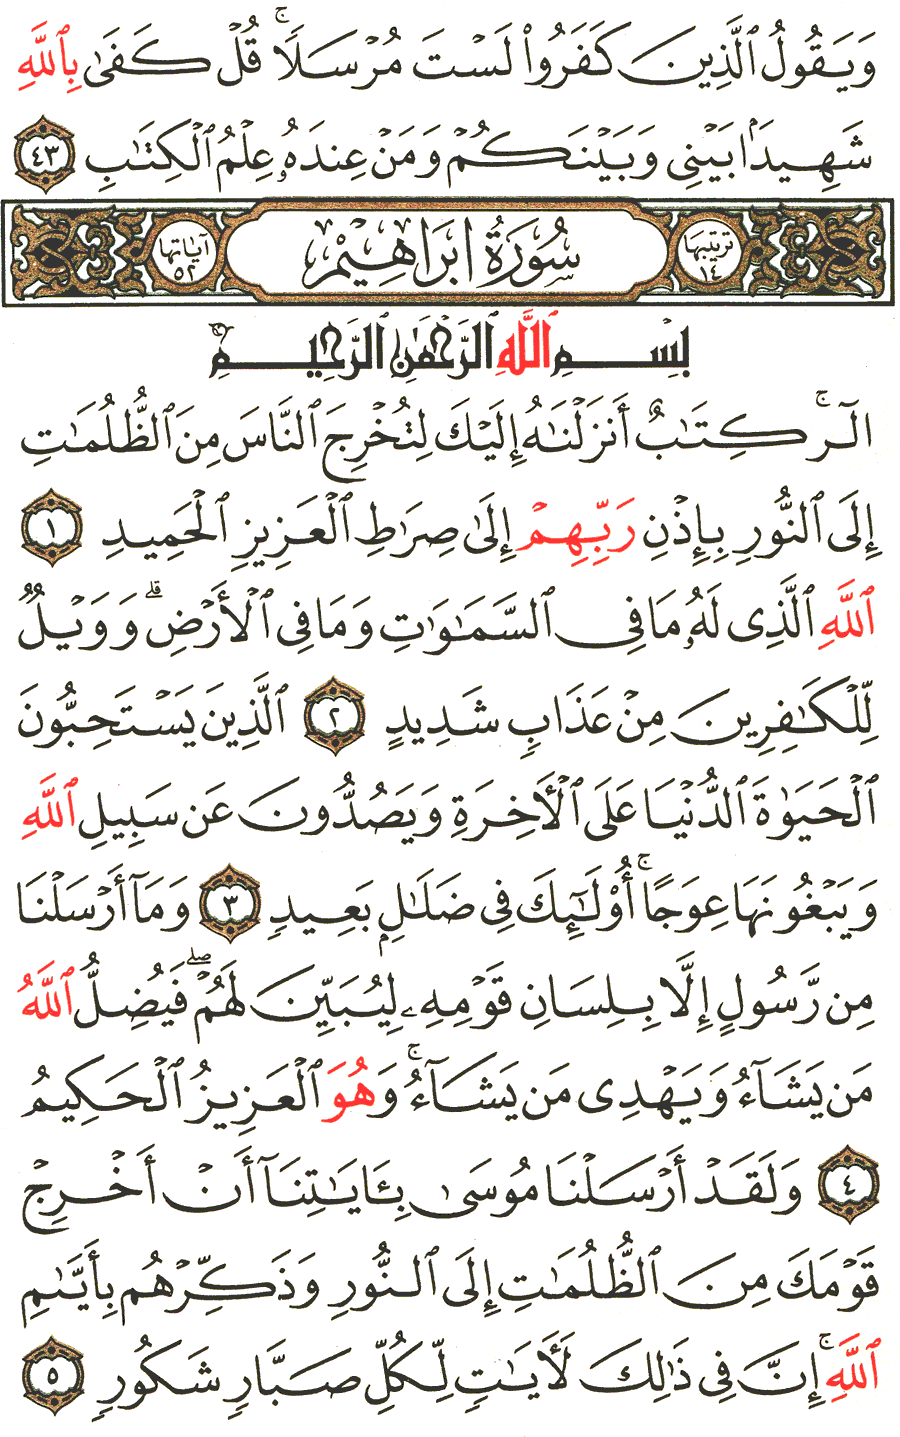 وَيَقُولُ ٱلَّذِينَ كَفَرُوا۟ لَسْتَ مُرْسَلًا ۚ قُلْ كَفَىٰ بِٱللَّهِ
شَهِيدًۢا بَيْنِى وَبَيْنَكُمْ وَمَنْ عِندَهُۥ عِلْمُ ٱلْكِتَٰبِ ٤٣
ترتيبها ١٤ سُورَةُ ابْرَاهِيْم آياتها ٥٢
بِسْمِ ٱللَّهِ ٱلرَّحْمَٰنِ ٱلرَّحِيمِ
الٓر ۚ كِتَٰبٌ أَنزَلْنَٰهُ إِلَيْكَ لِتُخْرِجَ ٱلنَّاسَ مِنَ ٱلظُّلُمَٰتِ
إِلَى ٱلنُّورِ بِإِذْنِ رَبِّهِمْ إِلَىٰ صِرَٰطِ ٱلْعَزِيزِ ٱلْحَمِيدِ ١
ٱللَّهِ ٱلَّذِى لَهُۥ مَا فِى ٱلسَّمَٰوَٰتِ وَمَا فِى ٱلْأَرْضِ ۗ وَوَيْلٌ
لِّلْكَٰفِرِينَ مِنْ عَذَابٍ شَدِيدٍ ٢ ٱلَّذِينَ يَسْتَحِبُّونَ
ٱلْحَيَوٰةَ ٱلدُّنْيَا عَلَى ٱلْأَخِرَةِ وَيَصُدُّونَ عَن سَبِيلِ ٱللَّهِ
وَيَبْغُونَهَا عِوَجًا ۚ أُو۟لَٰٓئِكَ فِى ضَلَٰلٍۭ بَعِيدٍ ٣ وَمَآ أَرْسَلْنَا
مِن رَّسُولٍ إِلَّا بِلِسَانِ قَوْمِهِۦ لِيُبَيِّنَ لَهُمْ ۖ فَيُضِلُّ ٱللَّهُ
مَن يَشَآءُ وَيَهْدِى مَن يَشَآءُ ۚ وَهُوَ ٱلْعَزِيزُ ٱلْحَكِيمُ
٤ وَلَقَدْ أَرْسَلْنَا مُوسَىٰ بِـَٔايَٰتِنَآ أَنْ أَخْرِجْ
قَوْمَكَ مِنَ ٱلظُّلُمَٰتِ إِلَى ٱلنُّورِ وَذَكِّرْهُم بِأَيَّىٰمِ
ٱللَّهِ ۚ إِنَّ فِى ذَٰلِكَ لَأَيَٰتٍ لِّكُلِّ صَبَّارٍ شَكُورٍ ٥